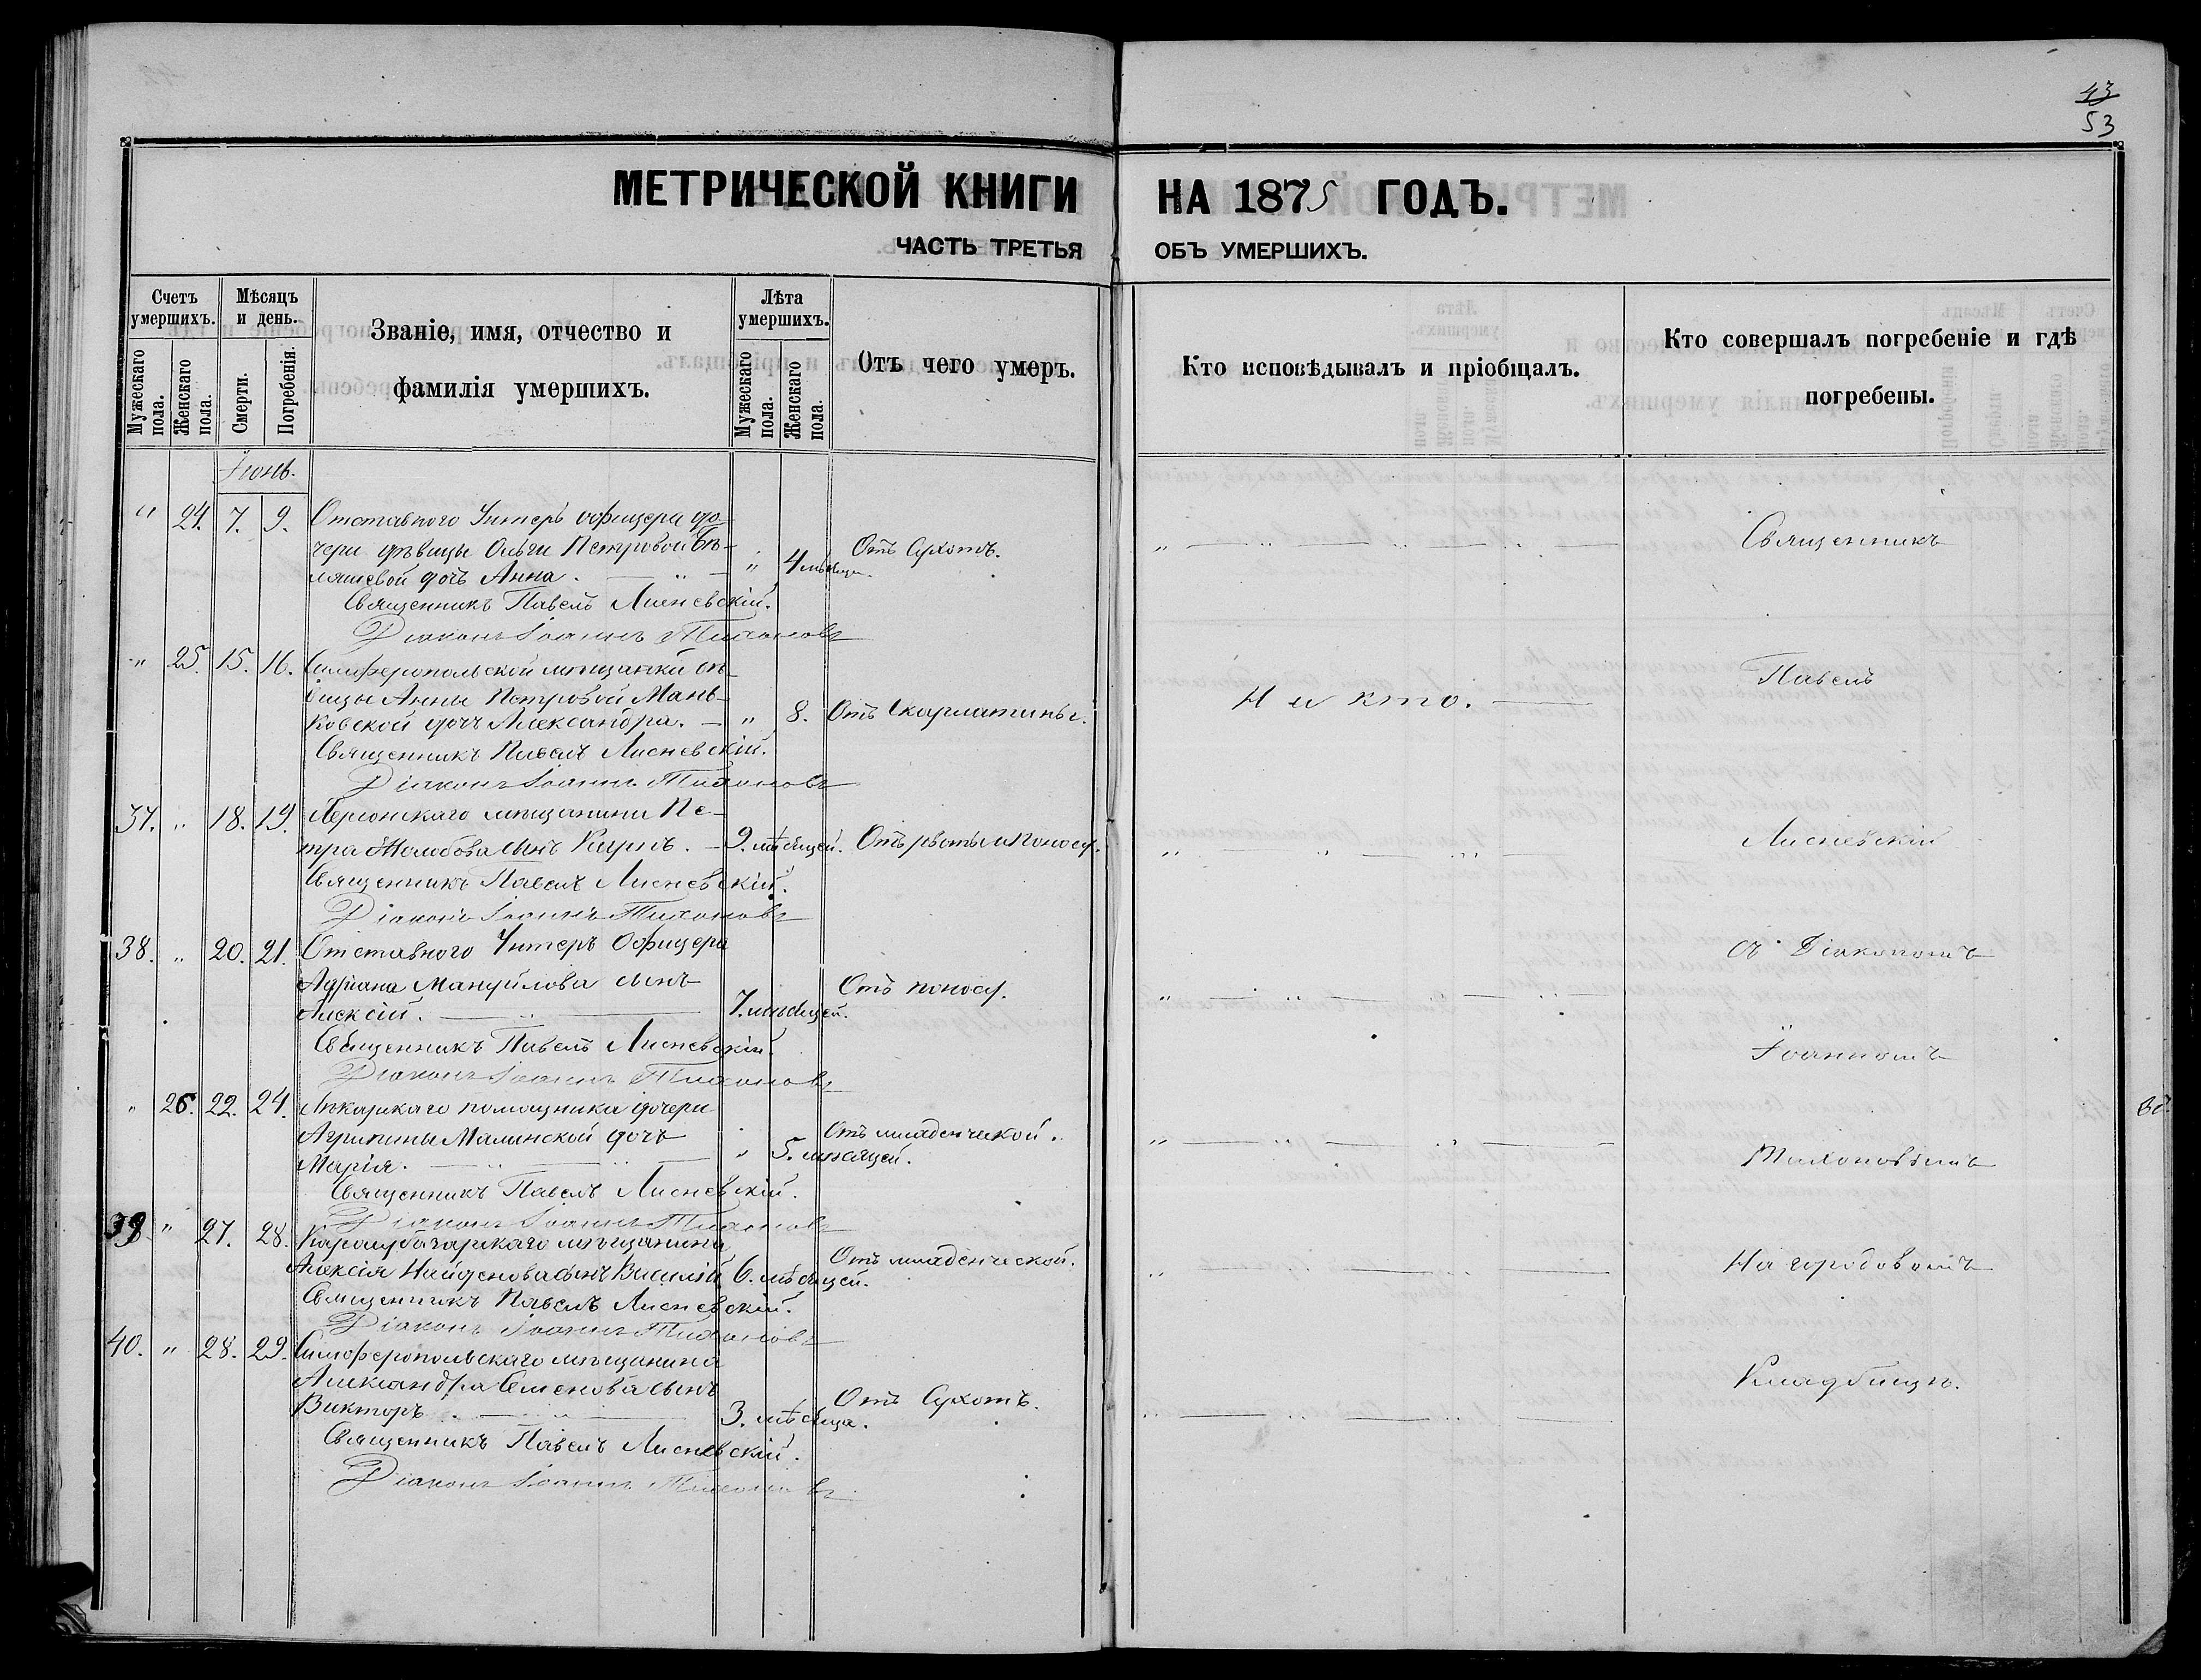 43
53
МЕТРИЧЕСКОЙ КНИГИ НА 1875 ГОДЪ.
ЧАСТЬ ТРЕТЬЯ ОБЪ УМЕРШИХЪ.
Счетъ умершихъ.
Мужескаго пола.
Женскаго пола.
Мѣсяцъ и день.
Смерти.
Погребенія.
Званіе, имя, отчество и
фамилія умершихъ.
Лѣта умершихъ.
Мужескаго пола.
Женскаго пола.
Отъ чего умеръ.
Кто исповѣдывалъ и пріобщалъ.
Кто совершалъ погребеніе и гдѣ
погребены.
Іюнь.
" 24. 7. 9. Отставного Унтеръ офицера до-
чери дѣвицы Ольги Петровой Бѣ-
ляшевой дочь Анна. " 4 мѣсяца. Отъ Сухотъ.
Священникъ Павелъ Лисневскій.
Діаконъ Іоаннъ Тихоновъ
" 25. 15. 16. Симферопольской мѣщанки дѣ-
вицы Анны Петровой Мань-
ковской дочь Александра. " 8. Отъ Скарлатины.
Священникъ Павелъ Лисневскій.
Діаконъ Іоаннъ Тихоновъ
37. " 18. 19. Херсонскаго мѣщанина Пе-
тра сынъ 9. мѣсяцей. Отъ рвоты и Поносу.
Священникъ Павелъ Лисневскій.
Діаконъ Іоаннъ Тихоновъ
38. " 20. 21. Отставного Унтеръ Офицера
Адріана Мануйлова сынъ
Алексій. 7. мѣсяцей. Отъ поносу.
Священникъ Павелъ Лисневскій.
Діаконъ Іоаннъ Тихоновъ
" 26. 22. 24. Лѣкарскаго помощника дочери
Агрипины Малинской дочь
Марія. " 5. мѣсяцей. Отъ младенческой.
Священникъ Павелъ Лисневскій.
Діаконъ Іоаннъ Тихоновъ
39. " 27. 28. Карасубазарскаго мѣщанина
Алексія Найденова сынъ Василій 6. мѣсяцей. Отъ младенческой.
Священникъ Павелъ Лисневскій.
Діаконъ Іоаннъ Тихоновъ
40. " 28. 29. Симферопольскаго мѣщанина
Александра Семенова сынъ
Викторъ. 3. мѣсяца. Отъ Сухотъ.
Священникъ Павелъ Лисневскій.
Діаконъ Іоаннъ Тихоновъ
Никто.
Священникъ
Павелъ
Лисневскій
съ Діакономъ
Іоанномъ
Тихоновымъ
На городовомъ
Кладбищѣ.